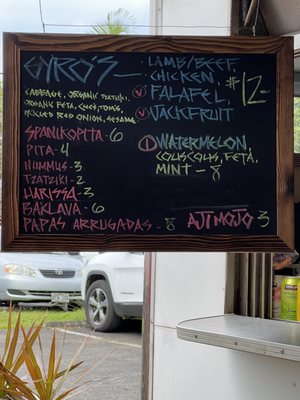 GYRO'S —
CABBAGE, ORGANIC TZATZIKI,
ORGANIC FETA, CUKES, TOM'S,
PICKLED RED ONION, SESAME
· LAMB/BEEF,
CHICKEN,
V FALAFEL,
V JACKFRUIT
#12-
SPANIKOPITA - 6
PITA - 4
HUMMUS - 3
TZATZIKI - 2
HARISSA - 3
BAKLAVA - 6
PAPAS ARRUGADAS - 8
WATERMELON,
COUSCOUS, FETA,
MINT - 8
AJI MOJO 3